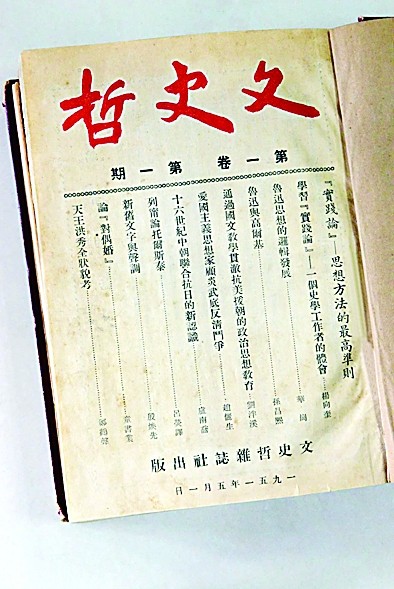 文史哲
第一卷 第一期
『實踐論』——思想方法的最高準則
學習『實踐論』——一個史學工作者的體會……楊向奎
魯迅思想的邏輯發展……華崗
魯迅與高爾基……孫昌熙
通過國文教學貫徹抗美援朝的政治思想教育……劉泮溪
愛國主義思想家顧炎武底反清鬥爭……趙儷生
十六世紀中朝聯合抗日的新認識……盧南喬
列寧論托爾斯泰……呂熒譯
新舊文字與聲調……殷煥先
論『對偶婚』……童書業
天王洪秀全狀貌考……鄭鶴聲
文史哲雜誌社出版
一九五一年五月一日